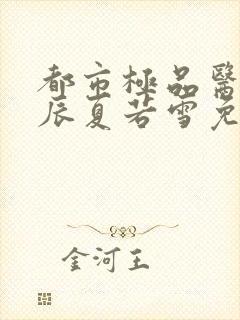 都市極品醫
辰夏若雪免
金河王